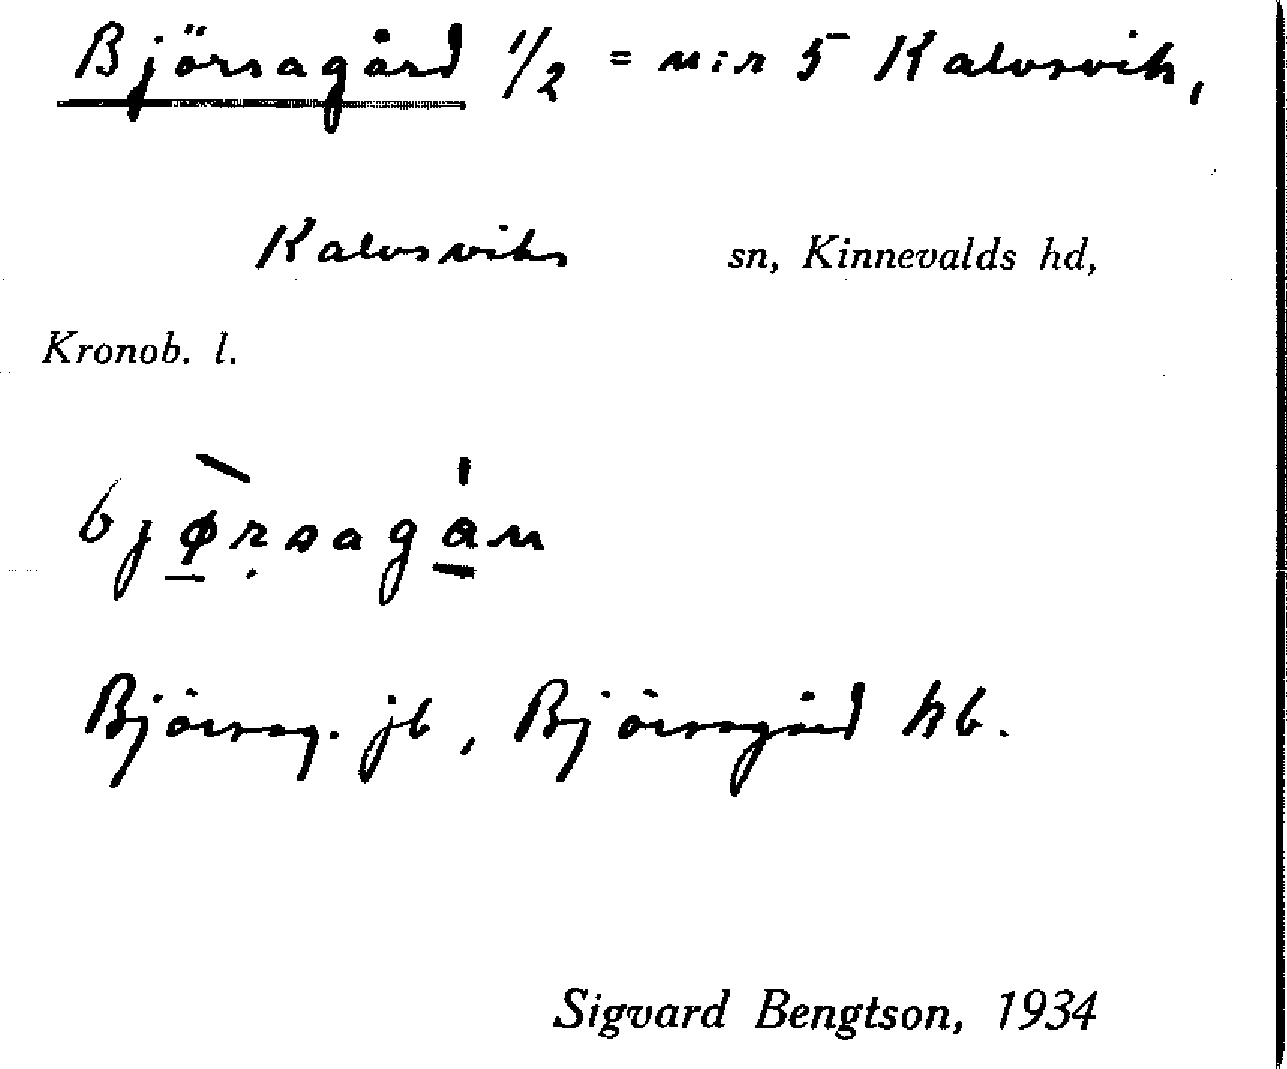 Björsagård 1/2 = n:r 5 Kalvsvik,
Kalvsviks sn, Kinnevalds hd,
Kronob. l.
bjø̱̀ṛsagá̱n
Björsag. jb, Björsagård hb.
Sigvard Bengtson, 1934